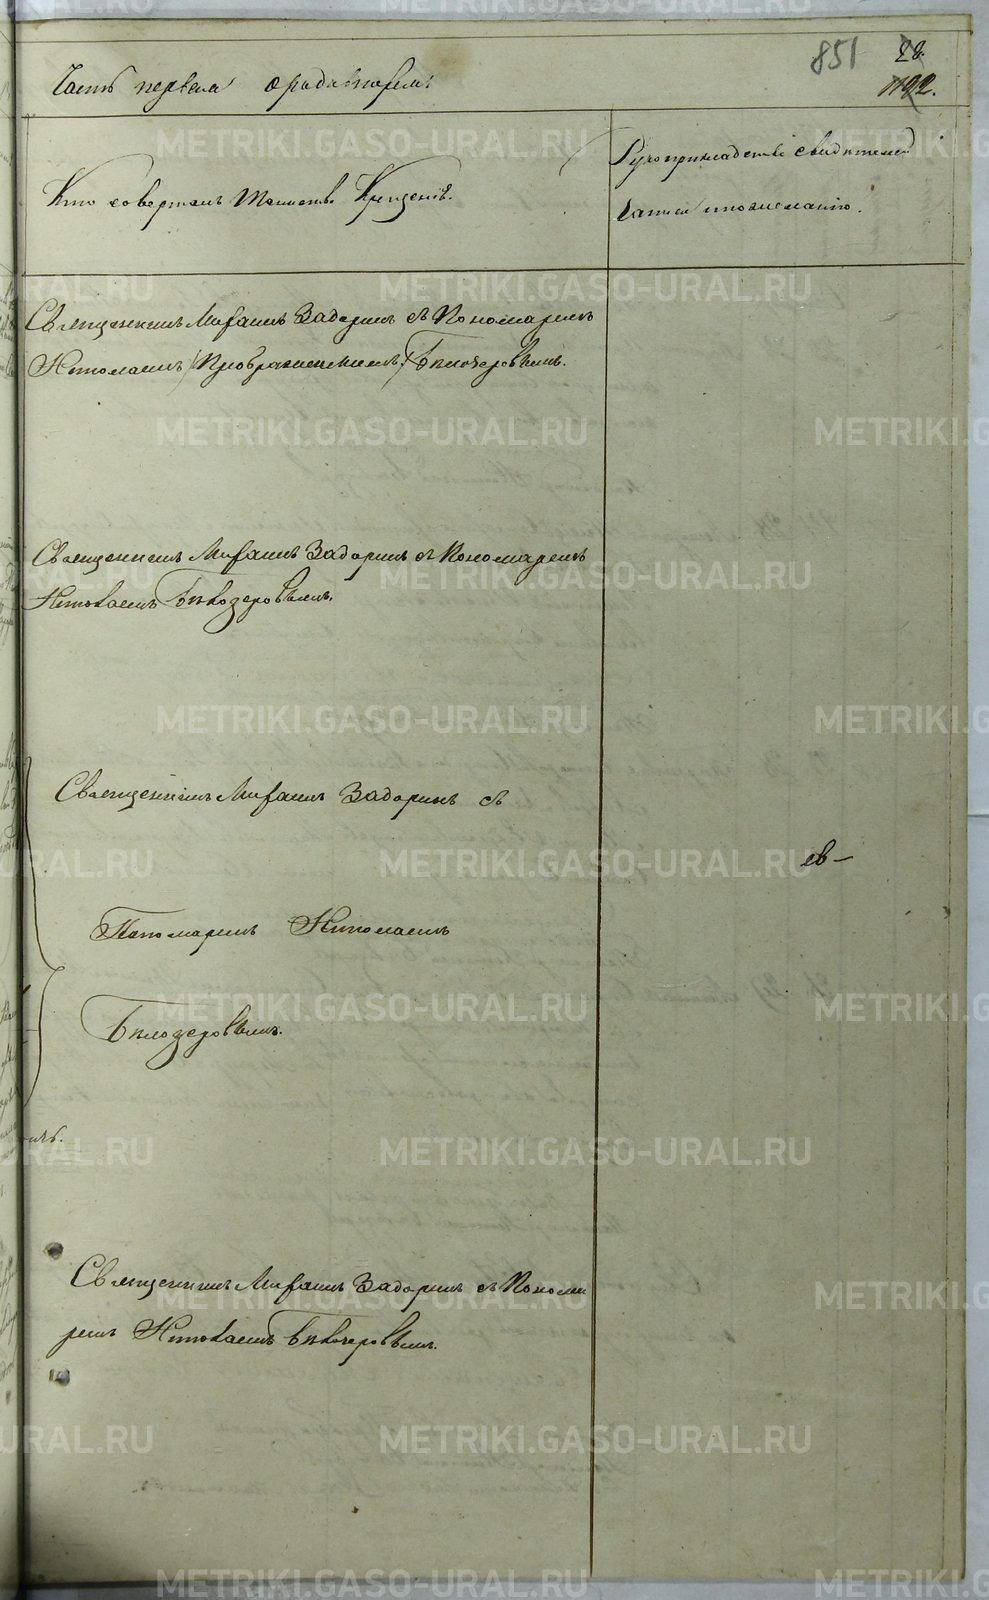 851 28.
1192.
Часть первая о родившихся.
Кто совершалъ таинство Крещенія.
Рукоприкладство свидѣтелей
записи по желанію.
Священникъ Михаилъ Задоринъ съ Пономаремъ
Николаемъ (Преображенскимъ) Бѣлозеровымъ.
Священникъ Михаилъ Задоринъ съ Пономаремъ
Николаемъ Бѣлозеровымъ.
Священникъ Михаилъ Задоринъ съ
Пономаремъ Николаемъ
Бѣлозеровымъ.
Священникъ Михаилъ Задоринъ съ Понома
ремъ Николаемъ Бѣлозеровымъ.
METRIKI.GASO-URAL.RU